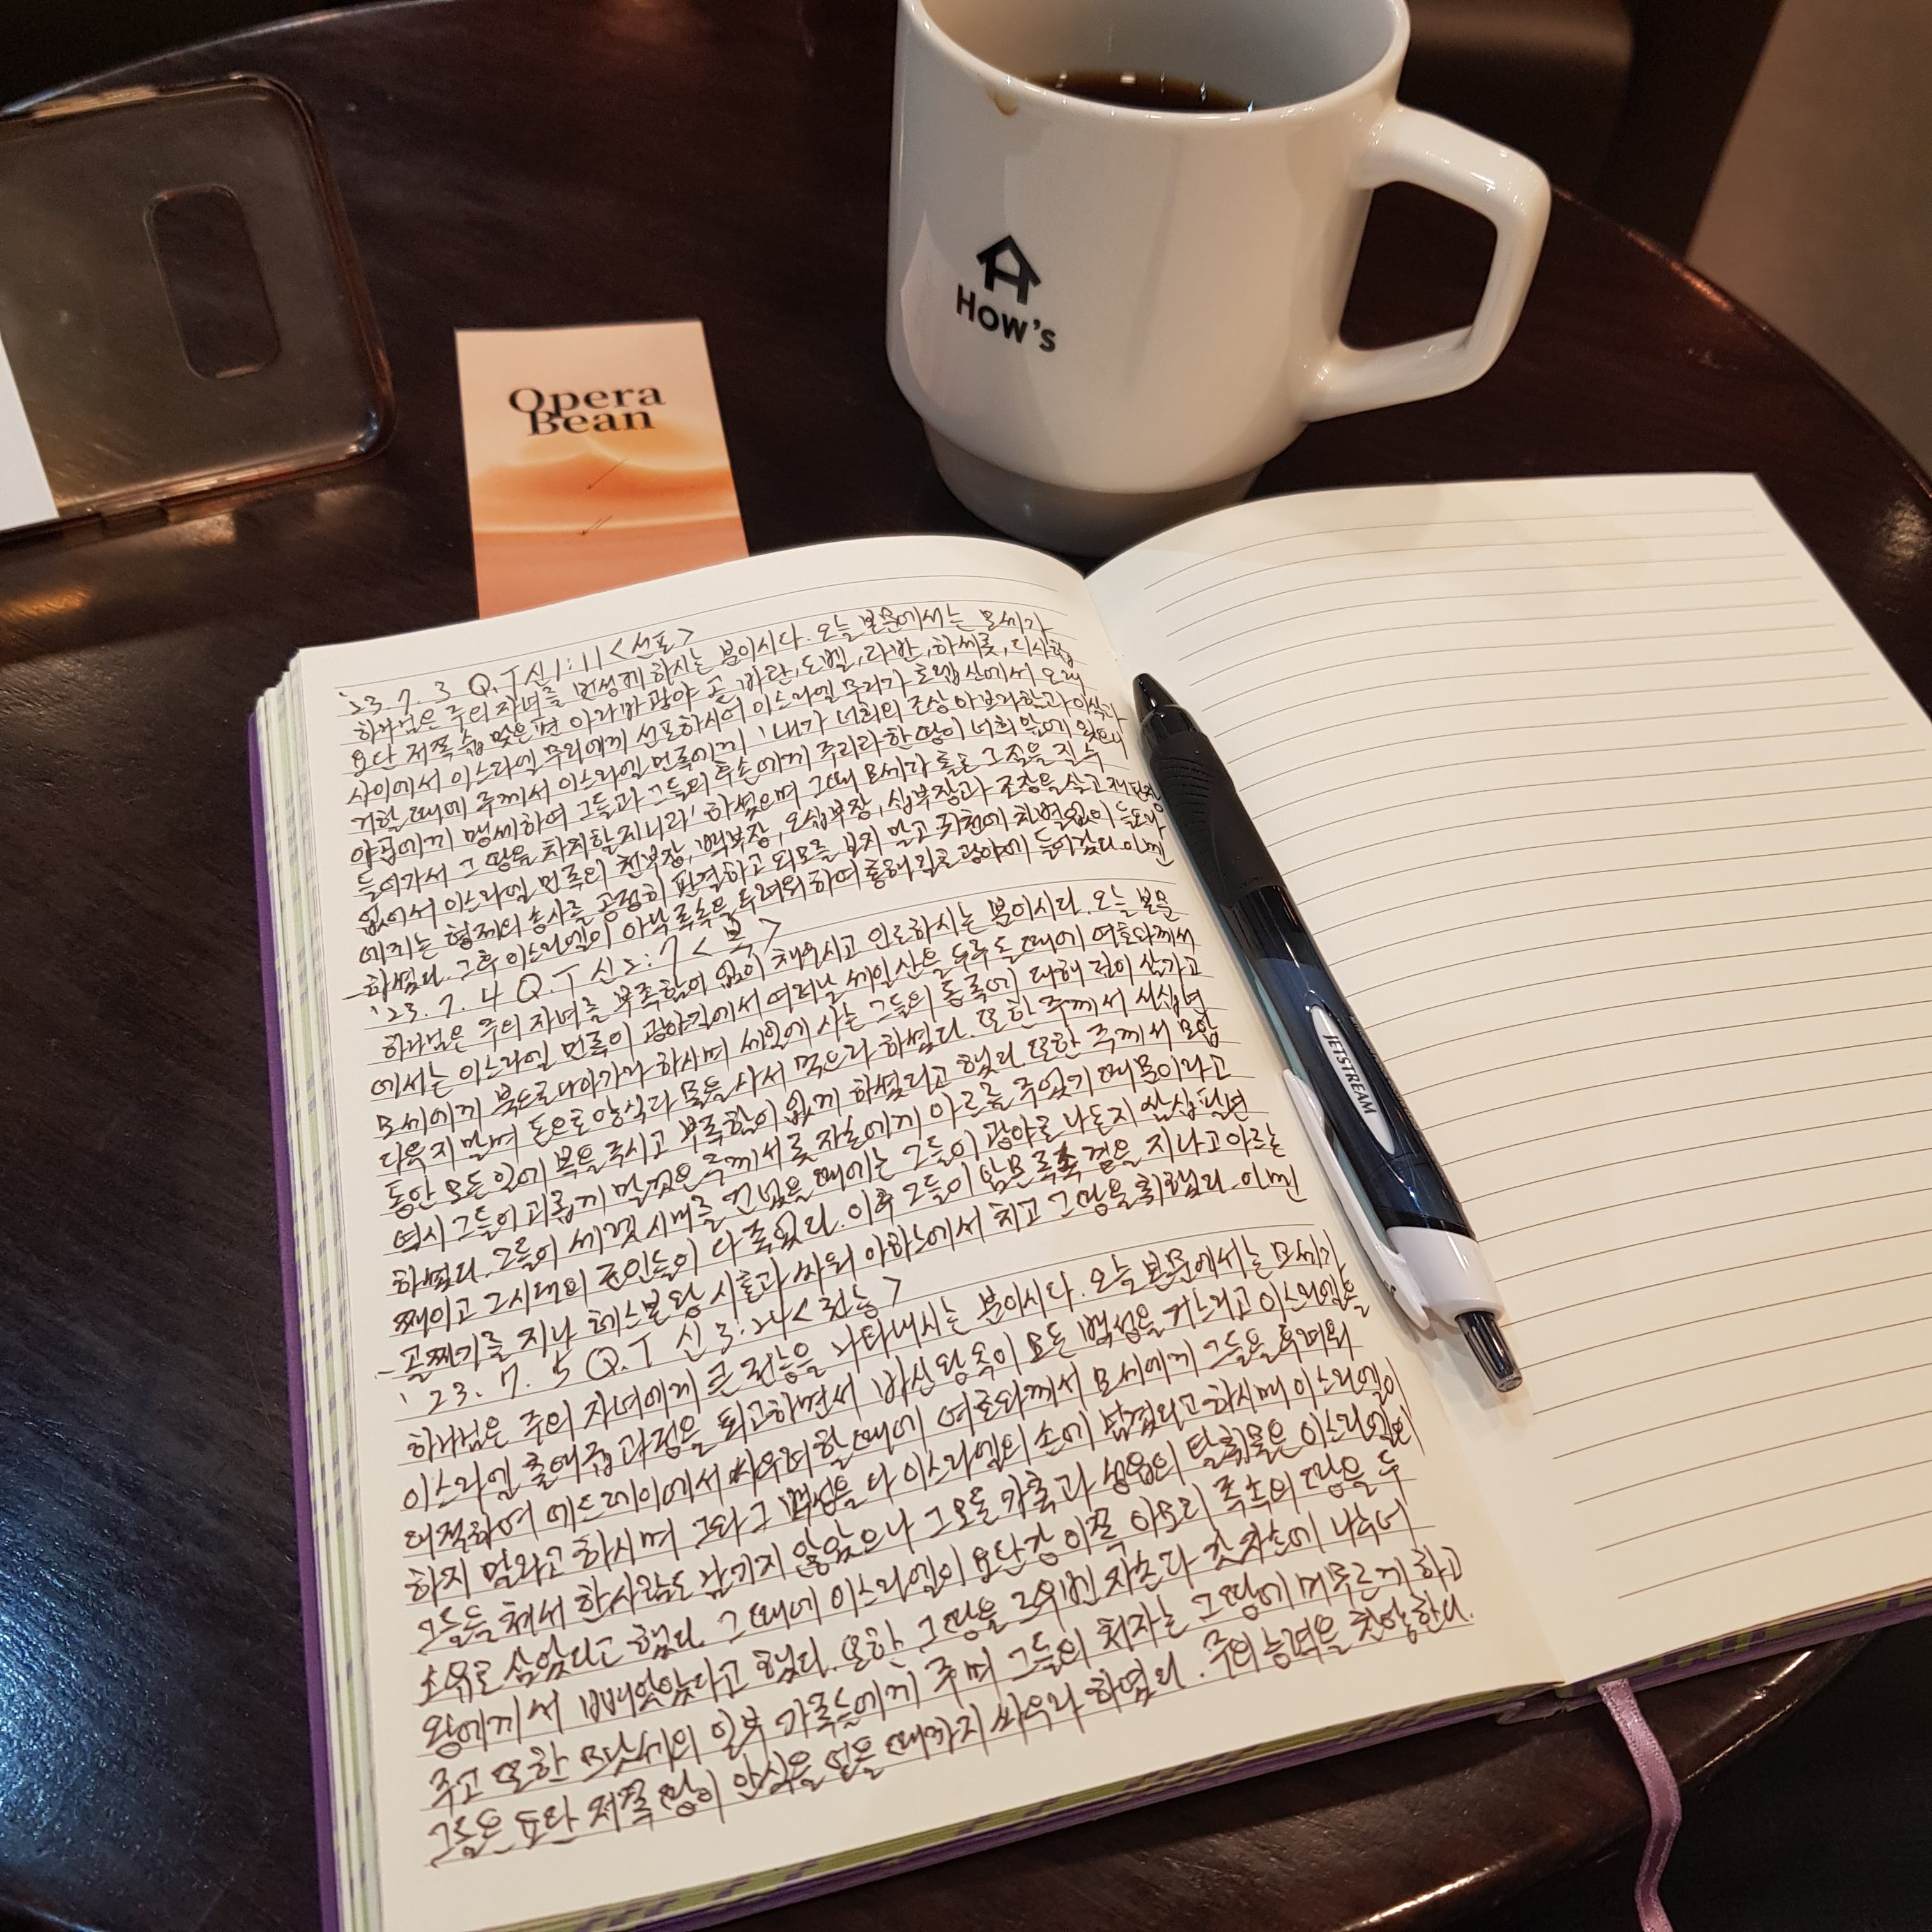 How's
Opera
Bean
JETSTREAM
'23. 7. 3 Q.T 신1:11 <선포>
하나님은 주의 자녀를 번성케 하시는 분이시다. 오늘 본문에서는 모세가
요단 저쪽 숩 맞은편 아라바 광야 곧 바란, 도벨, 라반, 하세롯, 디사합
사이에서 이스라엘 무리에게 선포하시어 이스라엘 무리가 호렙 산에서 오래
거할 때에 주께서 이스라엘 민족에게 '내가 너희의 조상 아브라함과 이삭과
야곱에게 맹세하여 그들과 그들의 후손에게 주리라 한 땅이 너희 앞에 있으니
들어가서 그 땅을 차지할지니라' 하셨으며 그때 모세가 홀로 그 짐을 질 수
없어서 이스라엘 민족의 천부장, 백부장, 오십부장, 십부장과 조장을 삼고 재판장
에게는 형제의 송사를 공정히 판결하고 외모를 보지 말고 귀천에 차별없이 들으라
하셨다. 그후 이스라엘이 아낙 족속을 두려워하여 홍해 길로 광야에 들어갔다. 아멘
'23. 7. 4 Q.T 신2:7 <복>
하나님은 주의 자녀를 부족함이 없이 채우시고 인도하시는 분이시다. 오늘 본문
에서는 이스라엘 민족이 광야길에서 여러날 세일 산을 두루 돌 때에 여호와께서
모세에게 북으로 나아가라 하시며 세일에 사는 그들의 동족에 대해 깊이 삼가고
다투지 말며 돈으로 양식과 물을 사서 먹으라 하셨다. 또한 주께서 사십년
동안 모든 일에 복을 주시고 부족함이 없게 하셨다고 했다. 또한 주께서 모압
역시 그들이 괴롭게 말 것은 주께서 롯 자손에게 아르를 주었기 때문이라고
하셨다. 그들이 세렛 시내를 건넜을 때에는 그들이 광야로 나온지 삼십 팔년
째이고 그시대의 군인들이 다 죽었다. 이후 그들이 암몬 족속 곁을 지나고 아르논
골짜기를 지나 헤스본 왕 시혼과 싸워 야하스에서 치고 그 땅을 취했다. 아멘
'23. 7. 5 Q.T 신 3:24 <권능>
하나님은 주의 자녀에게 큰 권능을 나타내시는 분이시다. 오늘 본문에서는 모세가
이스라엘 출애굽 과정을 회고하면서 바산 왕 옥이 모든 백성을 거느리고 이스라엘을
대적하여 에드레이에서 싸우려 할 때에 여호와께서 모세에게 그들을 두려워
하지 말라고 하시며 그와 그 백성을 다 이스라엘의 손에 넘겼다고 하시매 이스라엘이
그들을 쳐서 한사람도 남기지 않았으나 그 모든 가축과 성읍의 탈취물은 이스라엘의
소유로 삼았다고 했다. 그 때에 이스라엘이 요단강 이쪽 아모리 족속의 땅을 두
왕에게서 빼앗았다고 했다. 또한 그 땅을 르우벤 자손과 갓 자손에 나누어
주고 또한 므낫세의 일부 가족들에게 주며 그들의 처자는 그 땅에 머무르게 하고
그들은 요단 저쪽 땅이 안식을 얻을 때까지 싸우라 하였다. 주의 능력을 찬양한다.